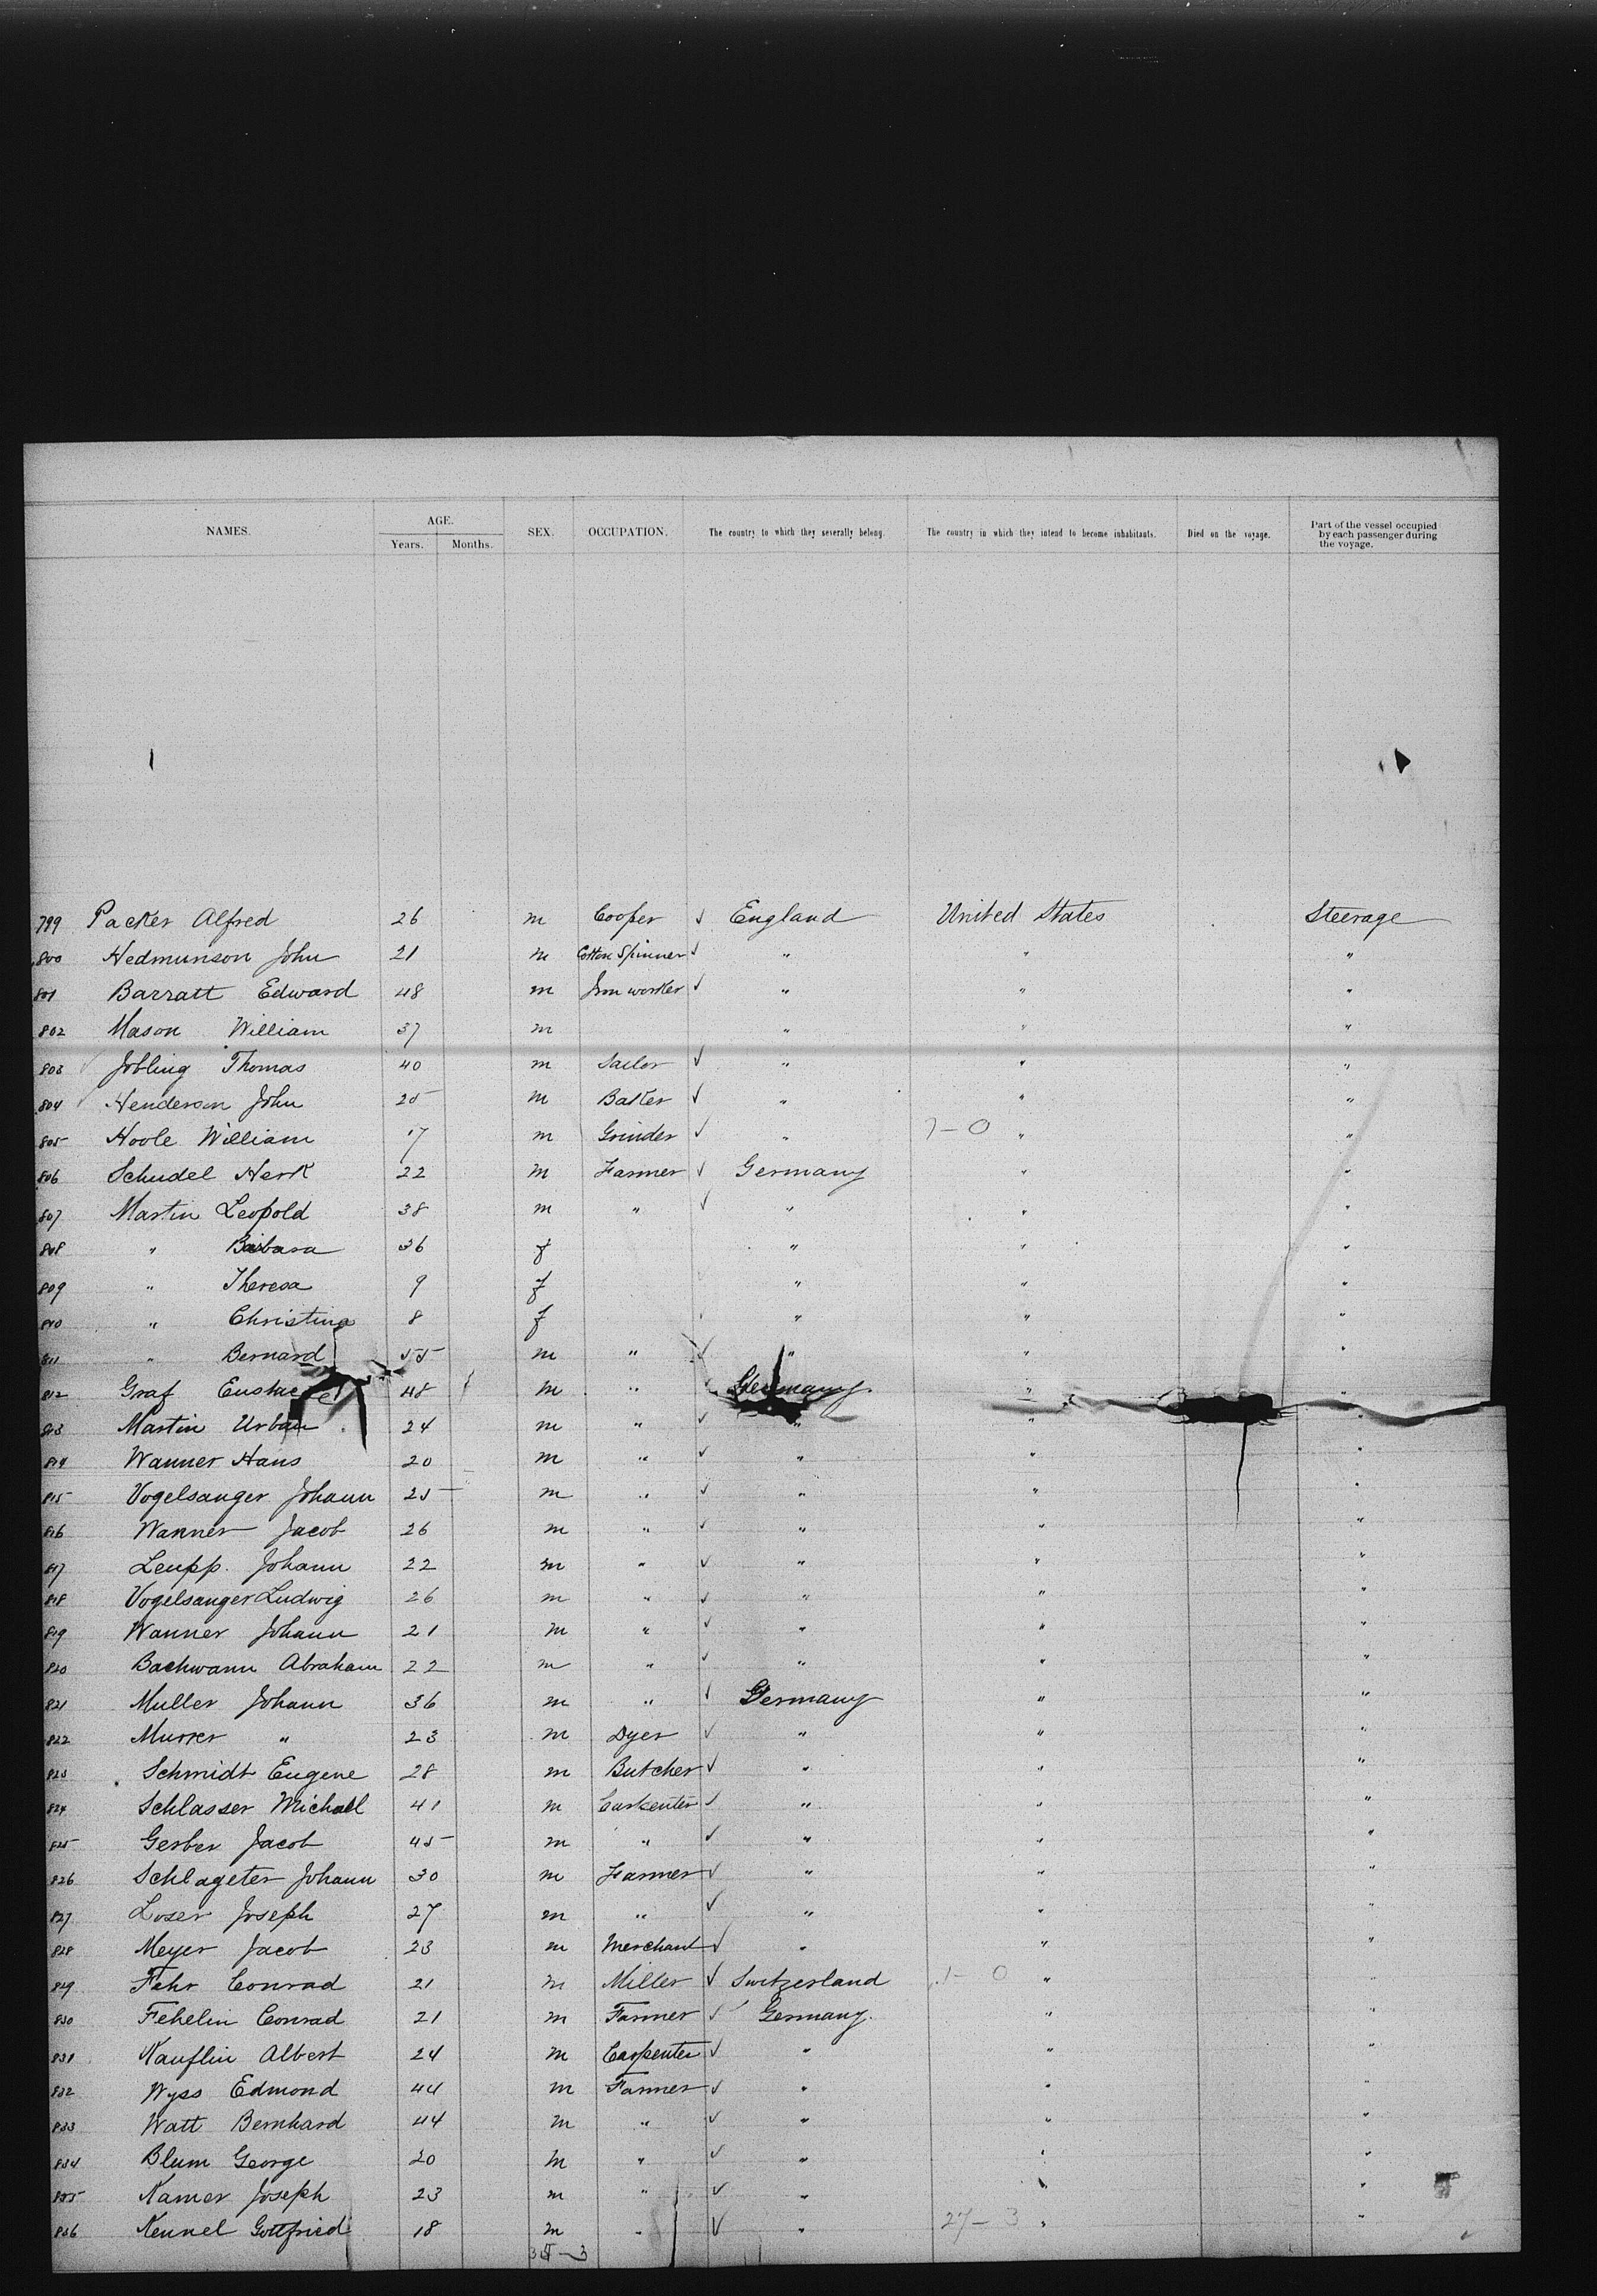 NAMES. AGE. SEX. OCCUPATION. The country to which they severally belong. The country in which they intend to become inhabitants. Died on the voyage. Part of the vessel occupied by each passenger during the voyage.
Years. Months.
799 Packer Alfred 26 m Cooper ✓ England United States Steerage
800 Hedmunson John 21 m Cotton Spinner ✓ " " "
801 Barratt Edward 48 m Iron worker ✓ " " "
802 Mason William 37 m " " "
803 Jobling Thomas 40 m Sailor ✓ " " "
804 Henderson John 25 m Baker ✓ " " "
805 Hoole William 17 m Grinder ✓ " 7-0 " "
806 Schudel Herk 22 m Farmer ✓ Germany " "
807 Martin Leopold 38 m " ✓ " " "
808 " Barbara 36 f " " "
809 " Theresa 9 f " " "
810 " Christina 8 f " " "
811 " Bernard 55 m " ✓ " " "
812 Graf 48 m " ✓ Germany " "
813 Martin Urban 24 m " ✓ " " "
814 Wanner Hans 20 m " ✓ " " "
815 Vogelsanger Johann 25 m " ✓ " " "
816 Wanner Jacob 26 m " ✓ " " "
817 Leupp. Johann 22 m " ✓ " " "
818 Vogelsanger Ludwig 26 m " ✓ " " "
819 Wanner Johann 21 m " ✓ " " "
820 Bachwann Abraham 22 m " ✓ " " "
821 Muller Johann 36 m " ✓ Germany " "
822 Murrer " 23 m Dyer ✓ " " "
823 Schmidt Eugene 28 m Butcher ✓ " " "
824 Schlasser Michael 41 m Carpenter ✓ " " "
825 Gerber Jacob 45 m " ✓ " " "
826 Schlageter Johann 30 m Farmer ✓ " " "
827 Loser Joseph 27 m " ✓ " " "
828 Meyer Jacob 23 m Merchant ✓ " " "
829 Fehr Conrad 21 m Miller ✓ Switzerland 1-0 " "
830 Fehelin Conrad 21 m Farmer ✓ Germany. " "
831 Kauflin Albert 24 m Carpenter ✓ " " "
832 Wyss Edmond 44 m Farmer ✓ " " "
833 Watt Bernhard 44 m " ✓ " " "
834 Blum George 20 m " ✓ " " "
835 Kamer Joseph 23 m " ✓ " " "
836 Kennel Gottfried 18 m " ✓ " 27-3 " "
35-3